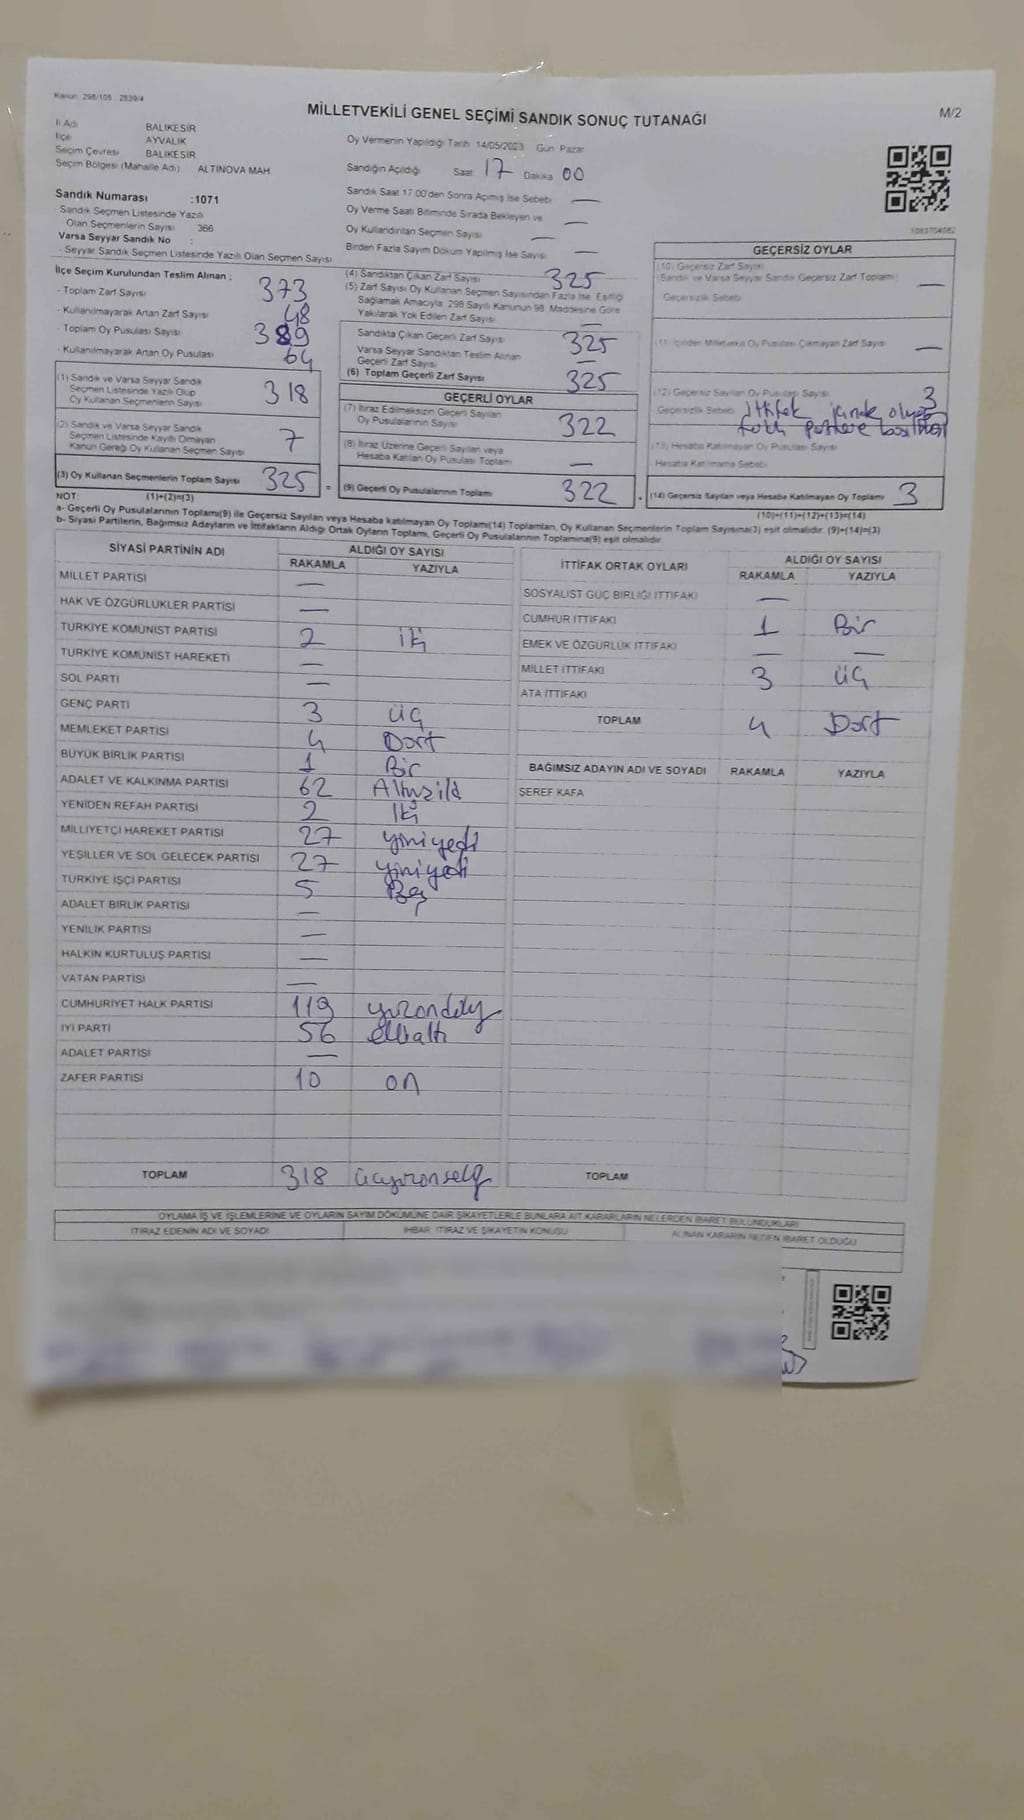 Kanun: 298/105 : 2839/4
MİLLETVEKİLİ GENEL SEÇİMİ SANDIK SONUÇ TUTANAĞI
M/2
İl Adı BALIKESİR
İlçe AYVALIK
Seçim Çevresi BALIKESİR
Seçim Bölgesi (Mahalle Adı) ALTINOVA MAH
Oy Vermenin Yapıldığı Tarih 14/05/2023 Gün Pazar
Sandığın Açıldığı Saat 17 Dakika 00
Sandık Saat 17:00'den Sonra Açımış İse Sebebi —
Oy Verme Saati Bitiminde Sırada Bekleyen ve —
Oy Kullandırılan Seçmen Sayısı —
Birden Fazla Sayım Döküm Yapılmış İse Sayısı —
Sandık Numarası :1071
Sandık Seçmen Listesinde Yazılı
Olan Seçmenlerin Sayısı 366
Varsa Seyyar Sandık No :
- Seyyar Sandık Seçmen Listesinde Yazılı Olan Seçmen Sayısı
İlçe Seçim Kurulundan Teslim Alınan ;
- Toplam Zarf Sayısı 373
- Kullanılmayarak Artan Zarf Sayısı 48
- Toplam Oy Pusulası Sayısı 389
- Kullanılmayarak Artan Oy Pusulası 64
(1) Sandık ve Varsa Seyyar Sandık
Seçmen Listesinde Yazılı Olup
Oy Kullanan Seçmenlerin Sayısı 318
(2) Sandık ve Varsa Seyyar Sandık
Seçmen Listesinde Kayıtlı Olmayan
Kanun Gereği Oy Kullanan Seçmen Sayısı 7
(3) Oy Kullanan Seçmenlerin Toplam Sayısı 325 =
(4) Sandıktan Çıkan Zarf Sayısı 325
(5) Zarf Sayısı Oy Kullanan Seçmen Sayısından Fazla İse, Eşitliği
Sağlamak Amacıyla, 298 Sayılı Kanunun 98. Maddesine Göre
Yakılarak Yok Edilen Zarf Sayısı —
Sandıkta Çıkan Geçerli Zarf Sayısı 325
Varsa Seyyar Sandıktan Teslim Alınan
Geçerli Zarf Sayısı —
(6) Toplam Geçerli Zarf Sayısı 325
GEÇERLİ OYLAR
(7) İtiraz Edilmeksizin Geçerli Sayılan
Oy Pusulalarının Sayısı 322
(8) İtiraz Üzerine Geçerli Sayılan veya
Hesaba Katılan Oy Pusulası Toplamı —
(9) Geçerli Oy Pusulalarının Toplamı 322 +
1083704082
GEÇERSİZ OYLAR
(10) Geçersiz Zarf Sayısı
(Sandık ve Varsa Seyyar Sandık Geçersiz Zarf Toplamı) —
Geçersizlik Sebebi
(11) İçinden Milletvekili Oy Pusulası Çıkmayan Zarf Sayısı —
(12) Geçersiz Sayılan Oy Pusulası Sayısı 3
Geçersizlik Sebebi
(13) Hesaba Katılmayan Oy Pusulası Sayısı
Hesaba Katılmama Sebebi
(14) Geçersiz Sayılan veya Hesaba Katılmayan Oy Toplamı 3
NOT: (1)+(2)=(3)
(10)+(11)+(12)+(13)=(14)
a- Geçerli Oy Pusulalarının Toplamı(9) ile Geçersiz Sayılan veya Hesaba katılmayan Oy Toplamı(14) Toplamları, Oy Kullanan Seçmenlerin Toplam Sayısına(3) eşit olmalıdır. (9)+(14)=(3)
b- Siyasi Partilerin, Bağımsız Adayların ve İttifakların Aldığı Ortak Oyların Toplamı, Geçerli Oy Pusulalarının Toplamına(9) eşit olmalıdır
SİYASİ PARTİNİN ADI ALDIĞI OY SAYISI
RAKAMLA YAZIYLA
MİLLET PARTİSİ —
HAK VE ÖZGÜRLÜKLER PARTİSİ —
TÜRKİYE KOMÜNİST PARTİSİ 2 iki
TÜRKİYE KOMÜNİST HAREKETİ —
SOL PARTİ —
GENÇ PARTİ 3 üç
MEMLEKET PARTİSİ 4 Dört
BÜYÜK BİRLİK PARTİSİ 1 Bir
ADALET VE KALKINMA PARTİSİ 62
YENİDEN REFAH PARTİSİ 2 İki
MİLLİYETÇİ HAREKET PARTİSİ 27 yirmiyedi
YEŞİLLER VE SOL GELECEK PARTİSİ 27 yirmiyedi
TÜRKİYE İŞÇİ PARTİSİ 5 Beş
ADALET BİRLİK PARTİSİ —
YENİLİK PARTİSİ —
HALKIN KURTULUŞ PARTİSİ —
VATAN PARTİSİ —
CUMHURİYET HALK PARTİSİ 119
İYİ PARTİ 56 elbaltı
ADALET PARTİSİ —
ZAFER PARTİSİ 10 on
TOPLAM 318
İTTİFAK ORTAK OYLARI ALDIĞI OY SAYISI
RAKAMLA YAZIYLA
SOSYALİST GÜÇ BİRLİĞİ İTTİFAKI —
CUMHUR İTTİFAKI 1 Bir
EMEK VE ÖZGÜRLÜK İTTİFAKI — —
MİLLET İTTİFAKI 3 üç
ATA İTTİFAKI
TOPLAM 4 Dört
BAĞIMSIZ ADAYIN ADI VE SOYADI RAKAMLA YAZIYLA
ŞEREF KAFA
TOPLAM
OYLAMA İŞ VE İŞLEMLERİNE VE OYLARIN SAYIM DÖKÜMÜNE DAİR ŞİKAYETLERLE BUNLARA AİT KARARLARIN NELERDEN İBARET BULUNDUKLARI
İTİRAZ EDENİN ADI VE SOYADI İHBAR, İTİRAZ VE ŞİKAYETİN KONUSU ALINAN KARARIN NEDEN İBARET OLDUĞU